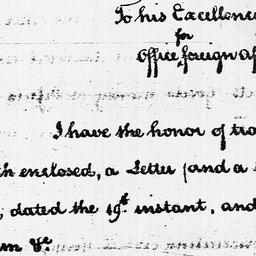 To his Excellenc
for
Office foreign af
I have the honor of tra
th enclosed, a Letter (and a
, dated the 19t instant, and
m &c.